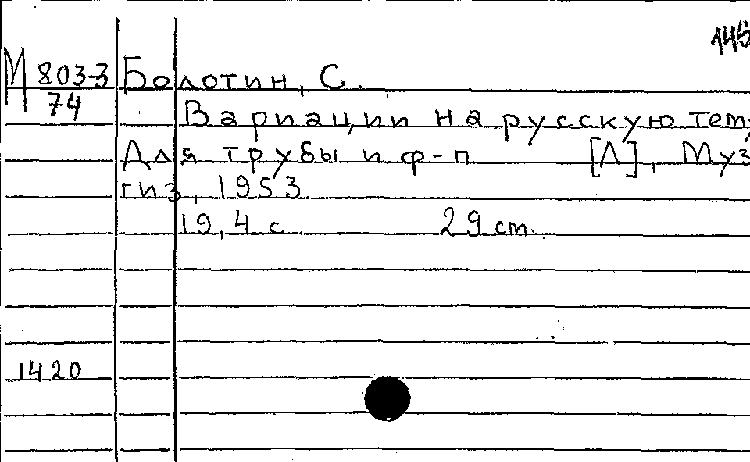 145
М 803-3 Болотин, С.
74
Вариации на русскую тем
Для трубы и ф-п [Л], Муз
гиз, 1953.
19, 4 с 29 ст.
1420